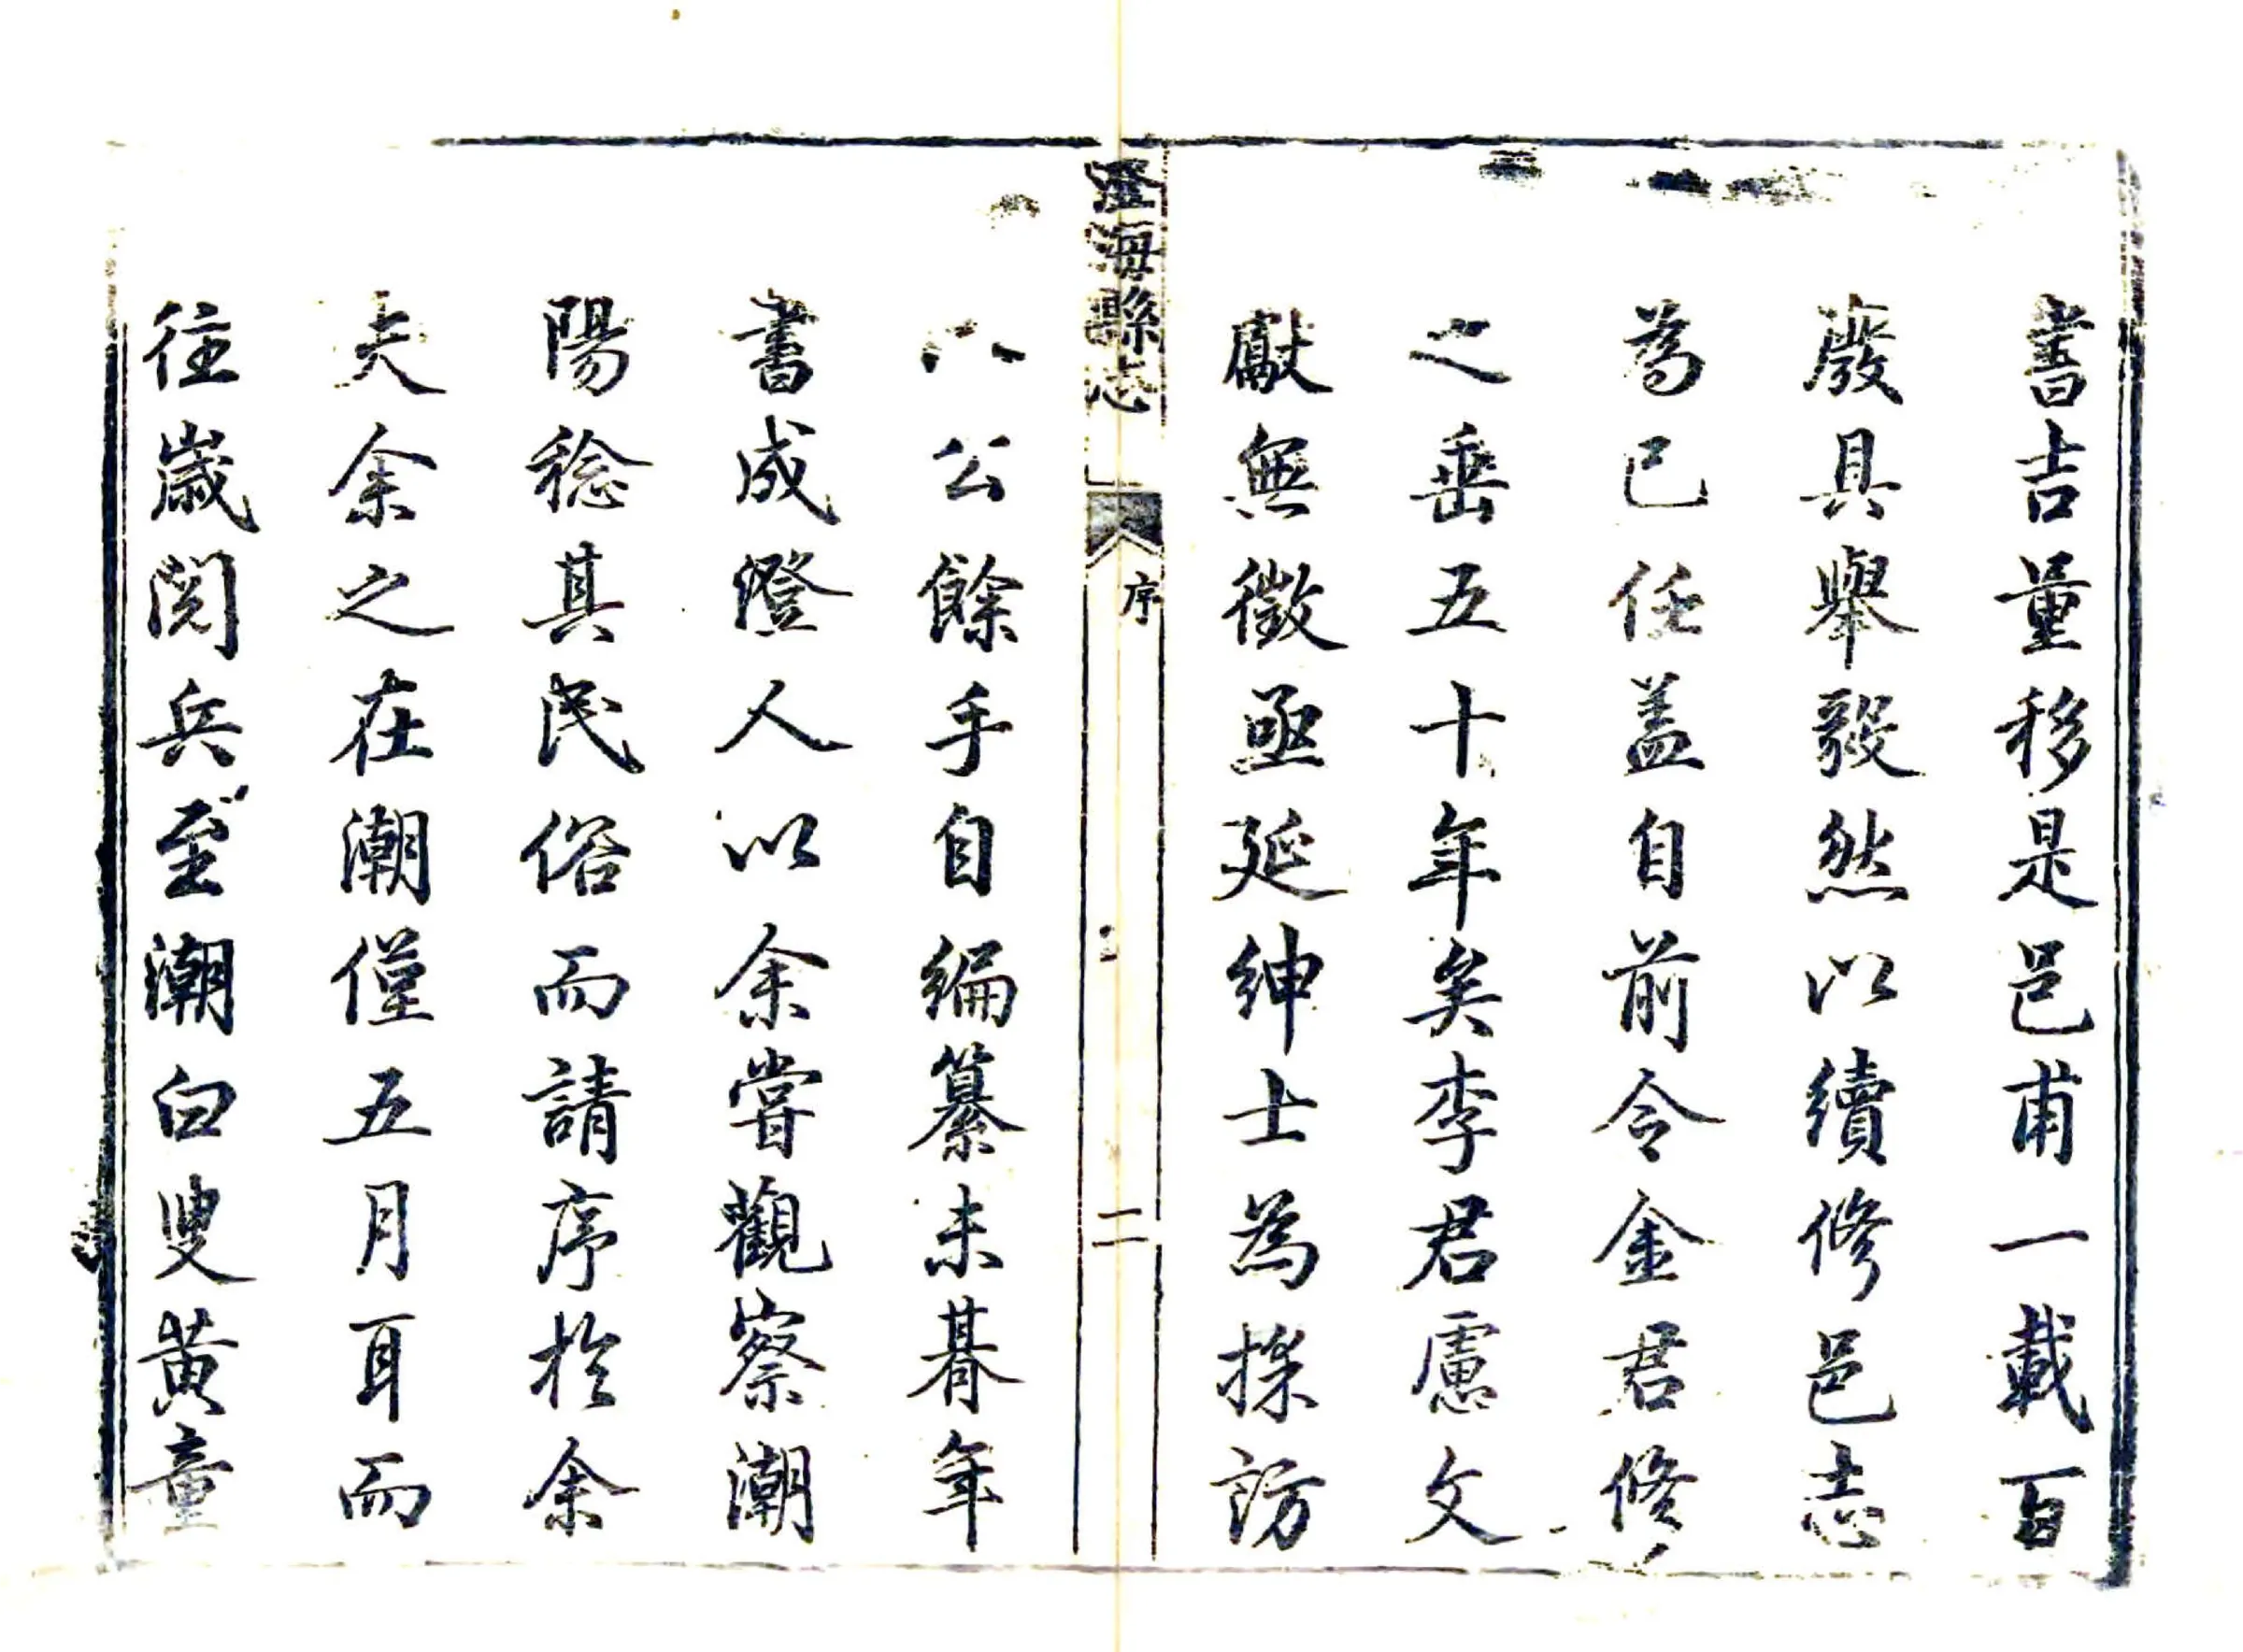 書吉量移是邑甫一載百
廢具舉毅然以續修邑志
為已任盖自前令金君修
之垂五十年矣李君慮文
獻無徵亟延紳士為採訪
澄海縣志
序
二
公餘手自編纂未朞年
書成澄人以余嘗觀察潮
陽稔其民俗而請序於余
夫余之在潮僅五月耳而
往歲閱兵至潮白叟黃童